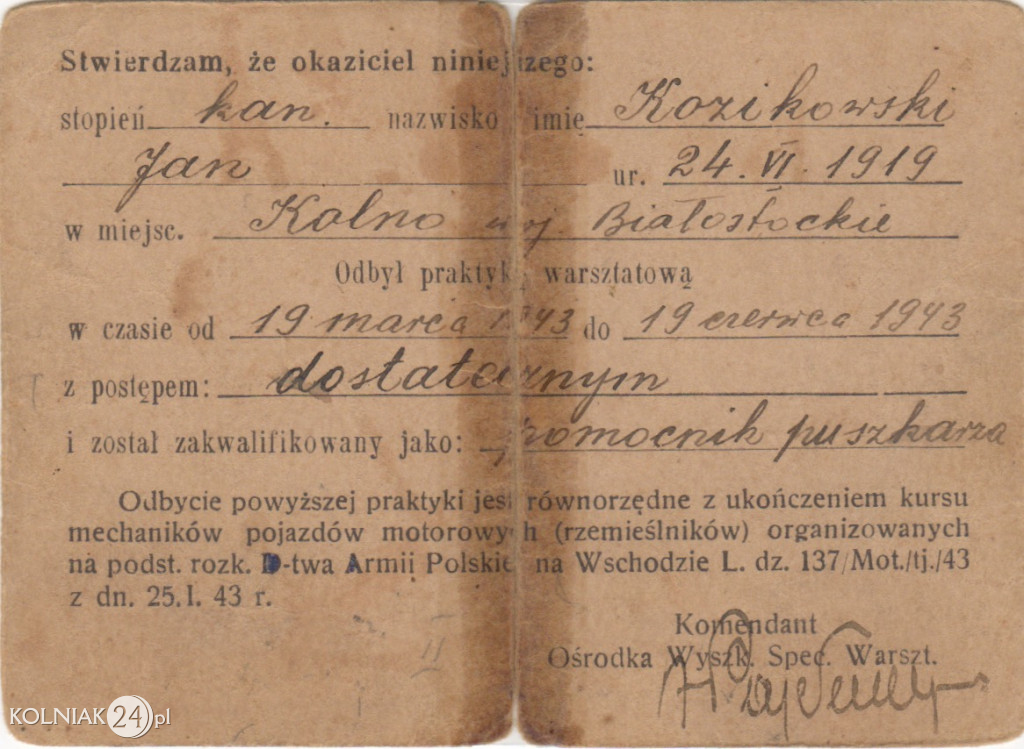 Stwierdzam, że okaziciel niniejszego:
stopień kan. nazwisko imię Kozikowski
Jan ur. 24. VI. 1919
w miejsc. Kolno woj. Białostockie
Odbył praktykę warsztatową
w czasie od 19 marca 1943 do 19 czerwca 1943
z postępem: dostatecznym
i został zakwalifikowany jako: pomocnik puszkarza
Odbycie powyższej praktyki jest równorzędne z ukończeniem kursu
mechaników pojazdów motorowych (rzemieślników) organizowanych
na podst. rozk. D-twa Armii Polskiej na Wschodzie L. dz. 137/Mot./tj./43
z dn. 25.I. 43 r.
Komendant
Ośrodka Wyszk. Spec. Warszt.
KOLNIAK24.pl